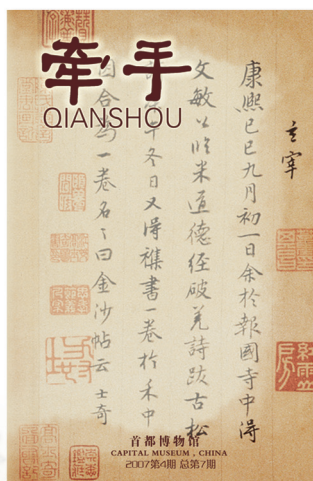 牵手
QIANSHOU
立宰
康熙己巳九月初一日余於報國寺中得
文敏公臨米道德經破羌詩跋古松
冬日又得襍書一卷於禾中
因合為一卷名之曰金沙帖云 士奇
首都博物馆
CAPITAL MUSEUM , CHINA
2007第4期 总第7期